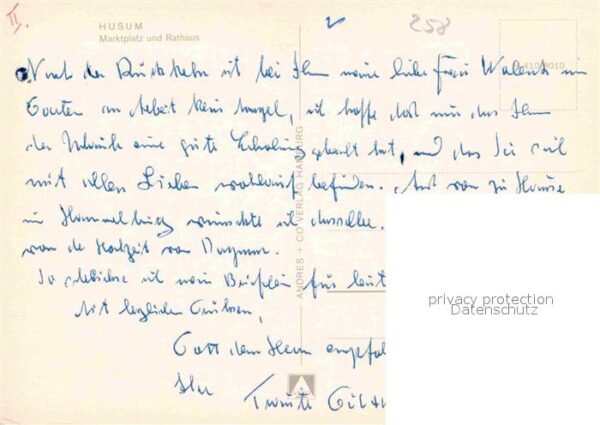 II.
HUSUM
Marktplatz und Rathaus
258
Nach der Rückkehr ist bei Ihnen meine liebe Frau
Garten an Arbeit kein Mangel, ich hoffe daß nun das
der Urlaub eine gute Erholung gebracht hat, und das Sie sich
mit allen Lieben wohlauf befinden. Auch von zu Hause
in Hammelburg wünschte ich dasselbe.
von der Hochzeit von Dagmar.
So schließe ich mein Brieflein für heut
Mit herzlichen Grüssen,
Gott dem Herrn empfoh
Ihr
ANDRES + CO VERLAG HAMBURG
privacy protection
Datenschutz